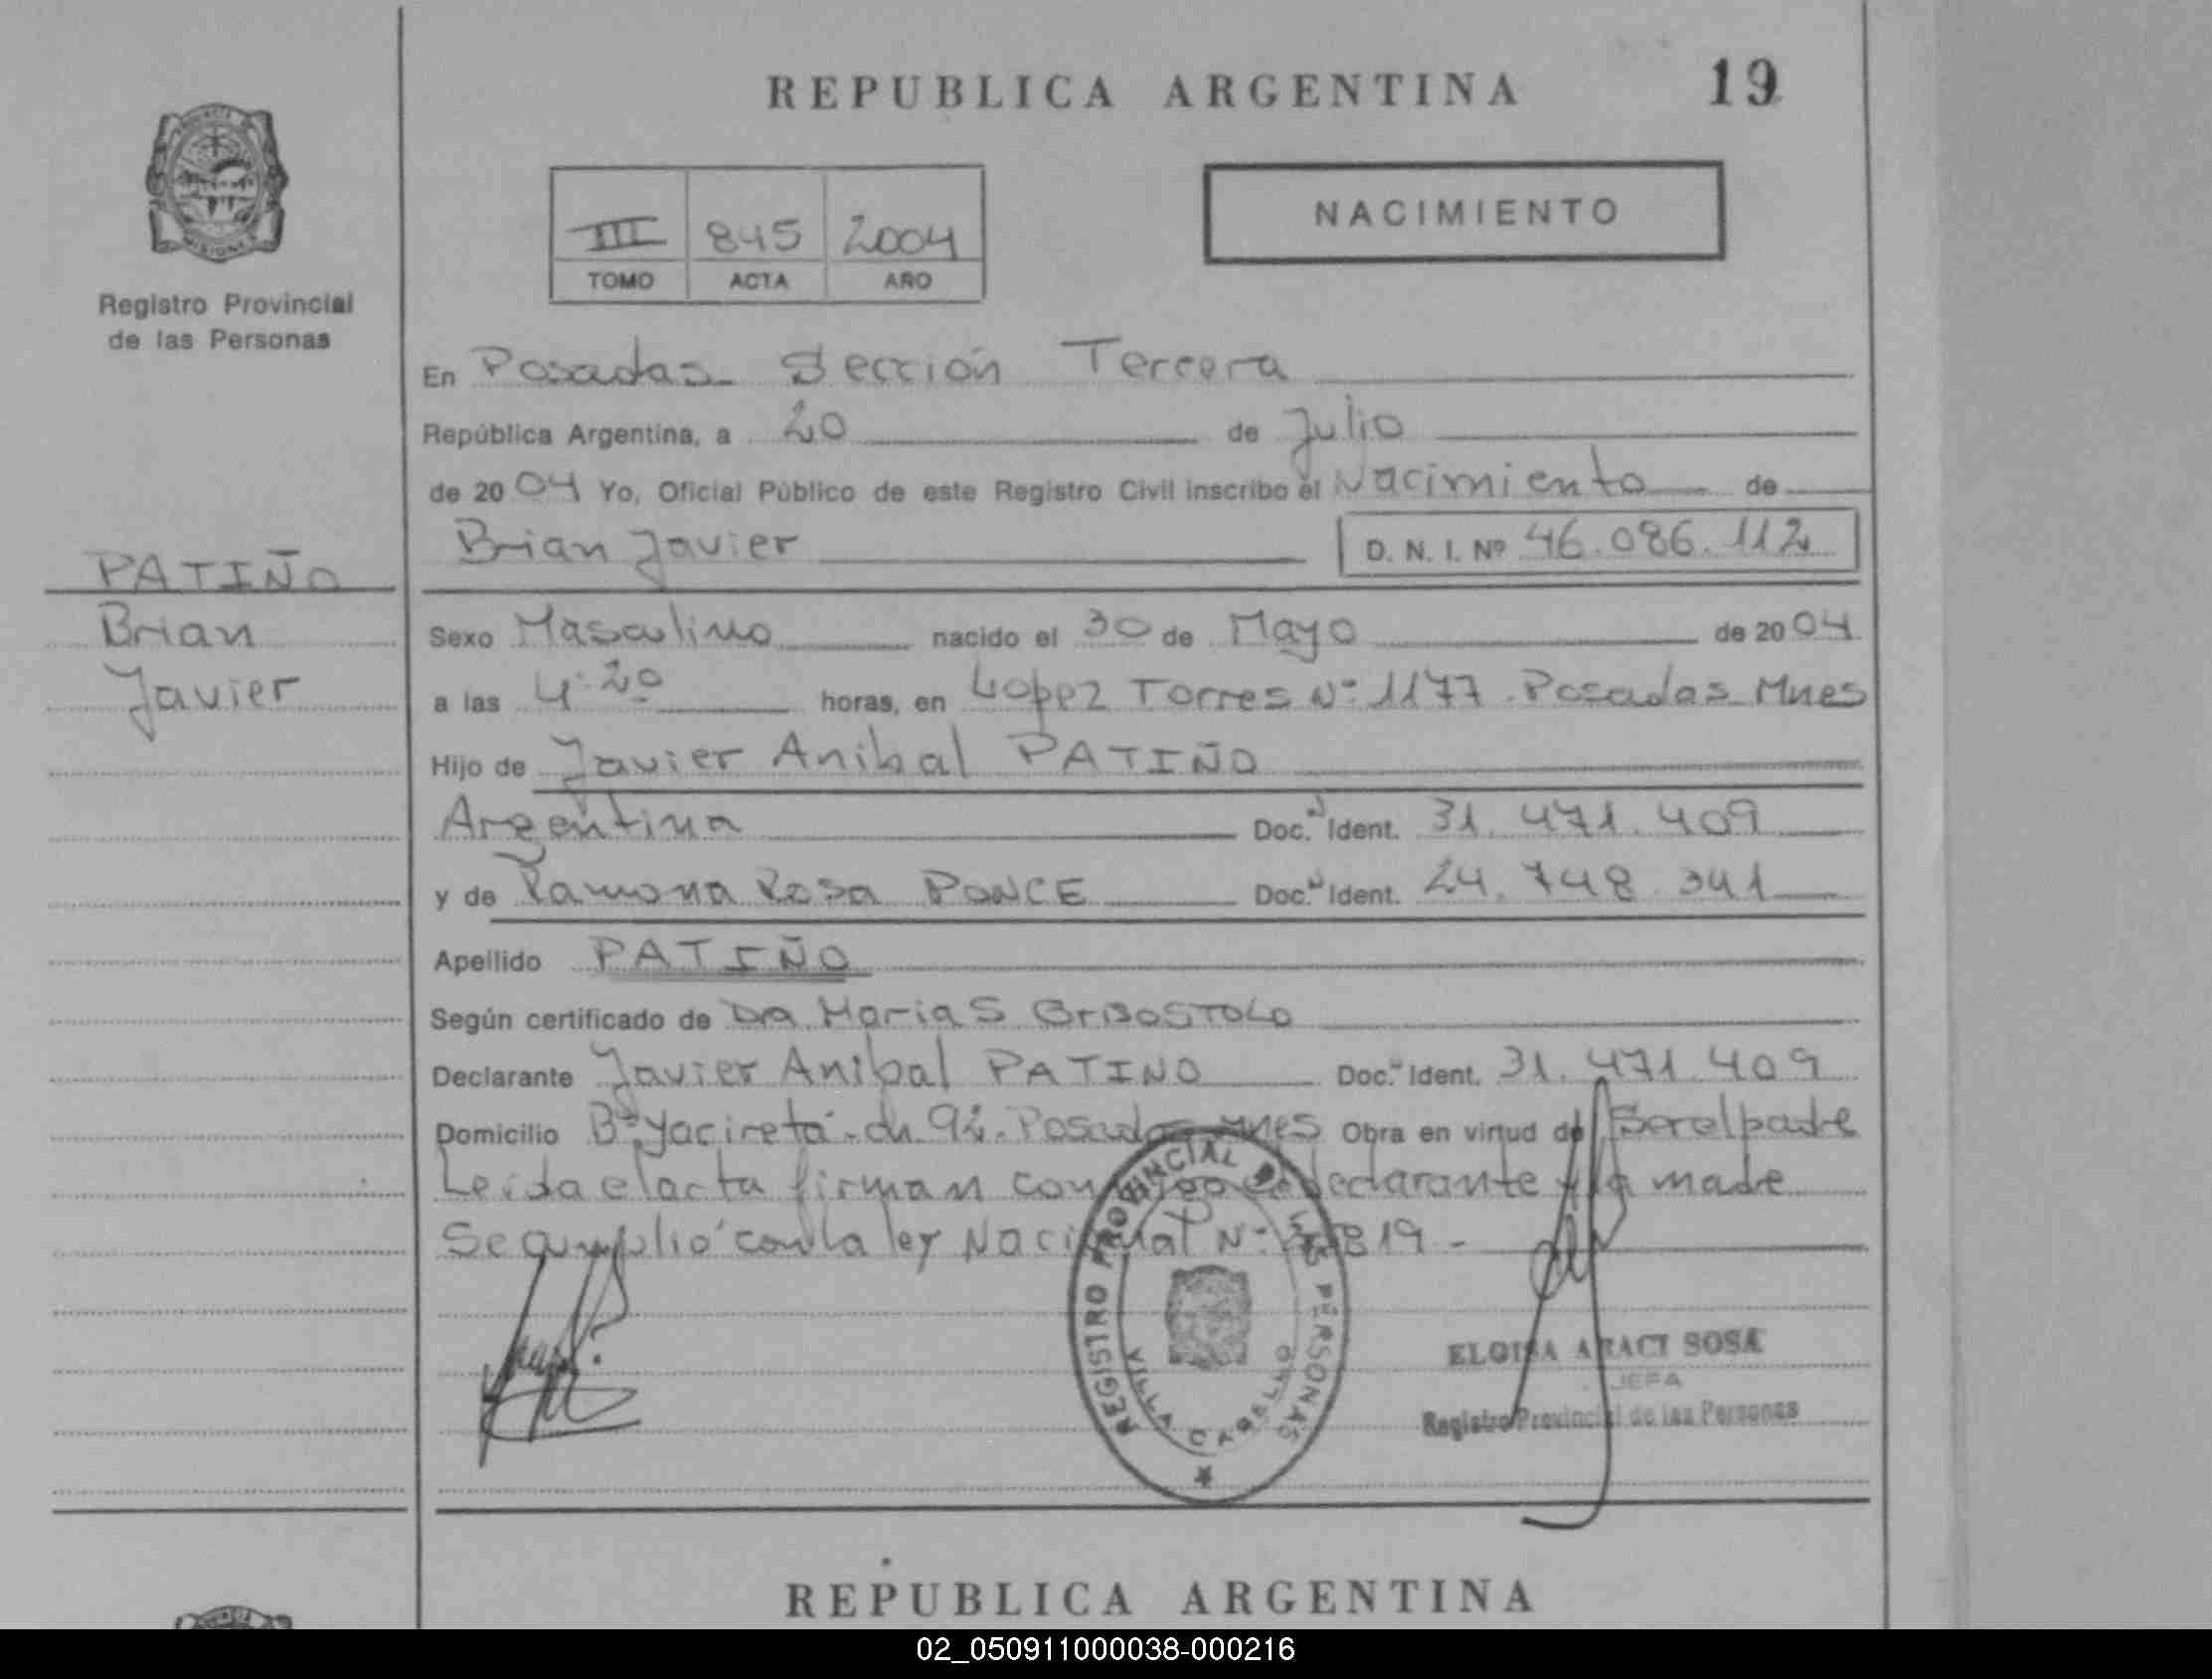 REPUBLICA ARGENTINA
19
III 845 2004
TOMO ACTA AÑO
NACIMIENTO
Registro Provincial
de las Personas
En Posadas Sección Tercera
República Argentina, a 20 de Julio
de 2004 Yo, Oficial Público de este Registro Civil inscribo el Nacimiento de
Brian Javier D. N. I. Nº 46.086.112
PATIÑO
Brian
Javier
Sexo Masculino nacido el 30 de Mayo de 2004
a las 4:20 horas, en Lopez Torres Nº 1177 Posadas Mnes
Hijo de Javier Anibal PATIÑO
Argentina Doc. Ident. 31.471.409
y de Ramona Rosa PONCE Doc. Ident. 24.748.341
Apellido PATIÑO
Según certificado de DRA Maria S GRISOSTOLO
Declarante Javier Anibal PATINO Doc. Ident. 31.471.409
Domicilio Bº Yacireta - ch 92 - Posadas Mnes Obra en virtud de Ser el padre
Leida el acta firman conmigo el declarante y la madre
Se cumplio con la ley Nacional Nº 819 -
REGISTRO PROVINCIAL DE LAS PERSONAS
VILLA CABELLO
ELOISA ARACI SOSA
JEFA
Registro Provincial de las Personas
REPUBLICA ARGENTINA
02_050911000038-000216